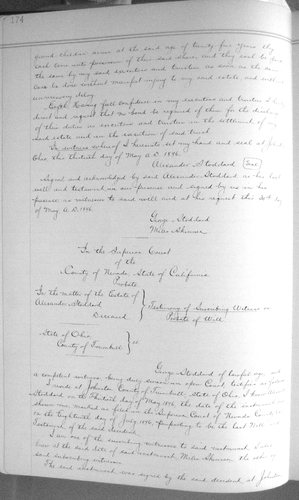 174
grand children arrive at the said age of twenty five years they
each come into possession of their said share and they each to be paid
the same by my said executors and trustees as soon as the same
can be done without material injury to my said estate and without
unnecessary delay
Sixth Having full confidence in my executors and trustees I hereby
direct and request that no bond be required of them for the discharge
of their duties as executors and trustees in the settlement of my
said estate and in the execution of said trust
In witness whereof I hereunto set my hand and seal at Johnston
Ohio this thirtieth day of May A.D. 1896.
Alexander Stoddard Seal
Signed and acknowledged by said Alexander Stoddard as his last
will and testament in our presence and signed by us in his
presence as witnesses to said will and at his request this 30th day
of May A.D. 1896.
George Stoddard
Miles Skinner
In the Superior Court
of the
County of Nevada, State of California
Probate
In the matter of the Estate of
Alexander Stoddard
Deceased
Testimony of Subscribing Witness on
Probate of Will
State of Ohio
County of Trumbull } ss
George Stoddard of lawful age, and
a competent witness being duly sworn in open Court testifies as follows
I reside at Johnston County of Trumbull, State of Ohio, I knew Alexander
Stoddard on the Thirtieth day of May 1896, the date of the instrument now
shown me, marked as filed in the Superior Court of Nevada County
on the Eightieth day of July 1896, purporting to be the last Will and
Testament of the said decedent.
I am one of the subscribing witnesses to said instrument. I also
knew at the said date of said instrument, Miles Skinner the other
said subscribing witness
The said instrument was signed by the said decedent, at Johnston